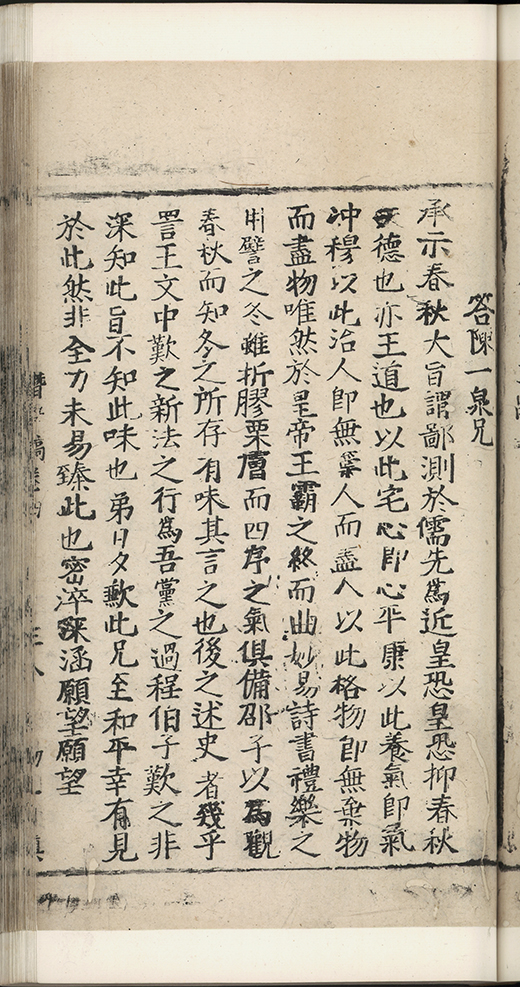 答陳一泉兄
承示春秋大旨謂鄙測於儒先為近皇恐皇恐抑春秋
天德也亦王道也以此宅心即心平康以此養氣即氣
冲穆以此治人即無棄人而盡人以此格物即無棄物
而盡物唯然於皇帝王霸之終而曲妙易詩書禮樂之
用譬之冬雖折膠栗膚而四序之氣俱備邵子以為觀
春秋而知冬之所存有味其言之也後之述史者幾乎
詈王文中歎之新法之行為吾黨之過程伯子歎之非
深知此旨不知此味也弟日夕歉此兄至和平幸有見
於此然非全力未易臻此也密淬深涵願望願望